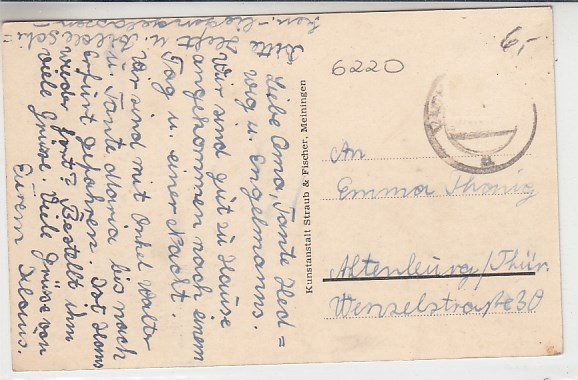 Liebe Oma, Tante Hed=
wig u. Engelmanns.
Wir sind gut zu Hause
angekommen nach einem
Tag u. einer Nacht.
Wir sind mit Onkel Walter
u. Tante Maria bis nach
Erfurt gefahren. Ist Hans
wieder fort? Bestellt ihm
viele Grüße. Viele Grüße von
Eurem Klaus.
Bitte
Heft u.
Kunstanstalt Straub & Fischer, Meiningen
6220
6,-
An
Emma
Altenburg/Thür.
Wenzelstraße 30